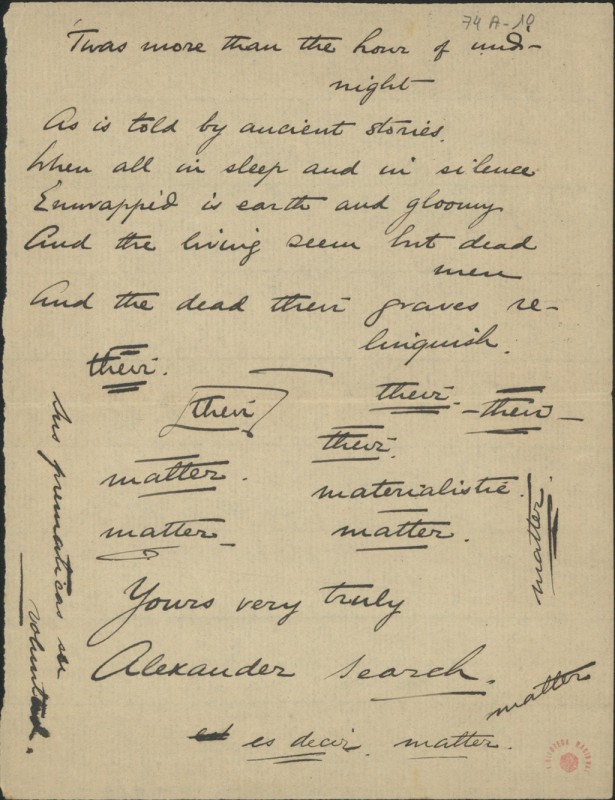 74A-18
'Twas more than the hour of mid-
night
As is told by ancient stories,
When all in sleep and in silence
Enwrappèd is earth and gloomy
And the living seem but dead
men
And the dead their graves re-
linquish.
their.
their
their -their-
their.
matter. materialistic.
matter- matter.
matter.
Yours very truly
Alexander Search.
matter
es decir. matter.
Sus prematicas su
voluntad.